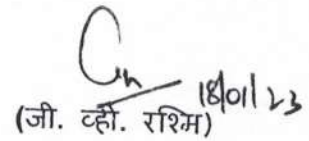 18/01/23
(जी. व्ही. रश्मि)